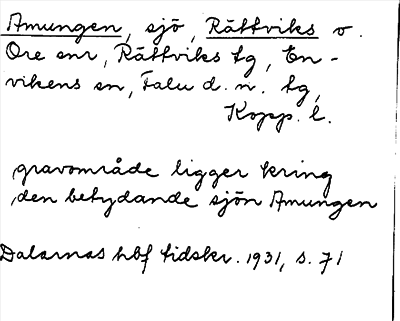 Amungen, sjö, Rättviks o.
Ore snr, Rättviks tg, En-
vikens sn, Falu d. n. tg,
Kopp. l.
gravområde ligger kring
den betydande sjön Amungen
Dalarnas hbf tidskr. 1931, s. 71